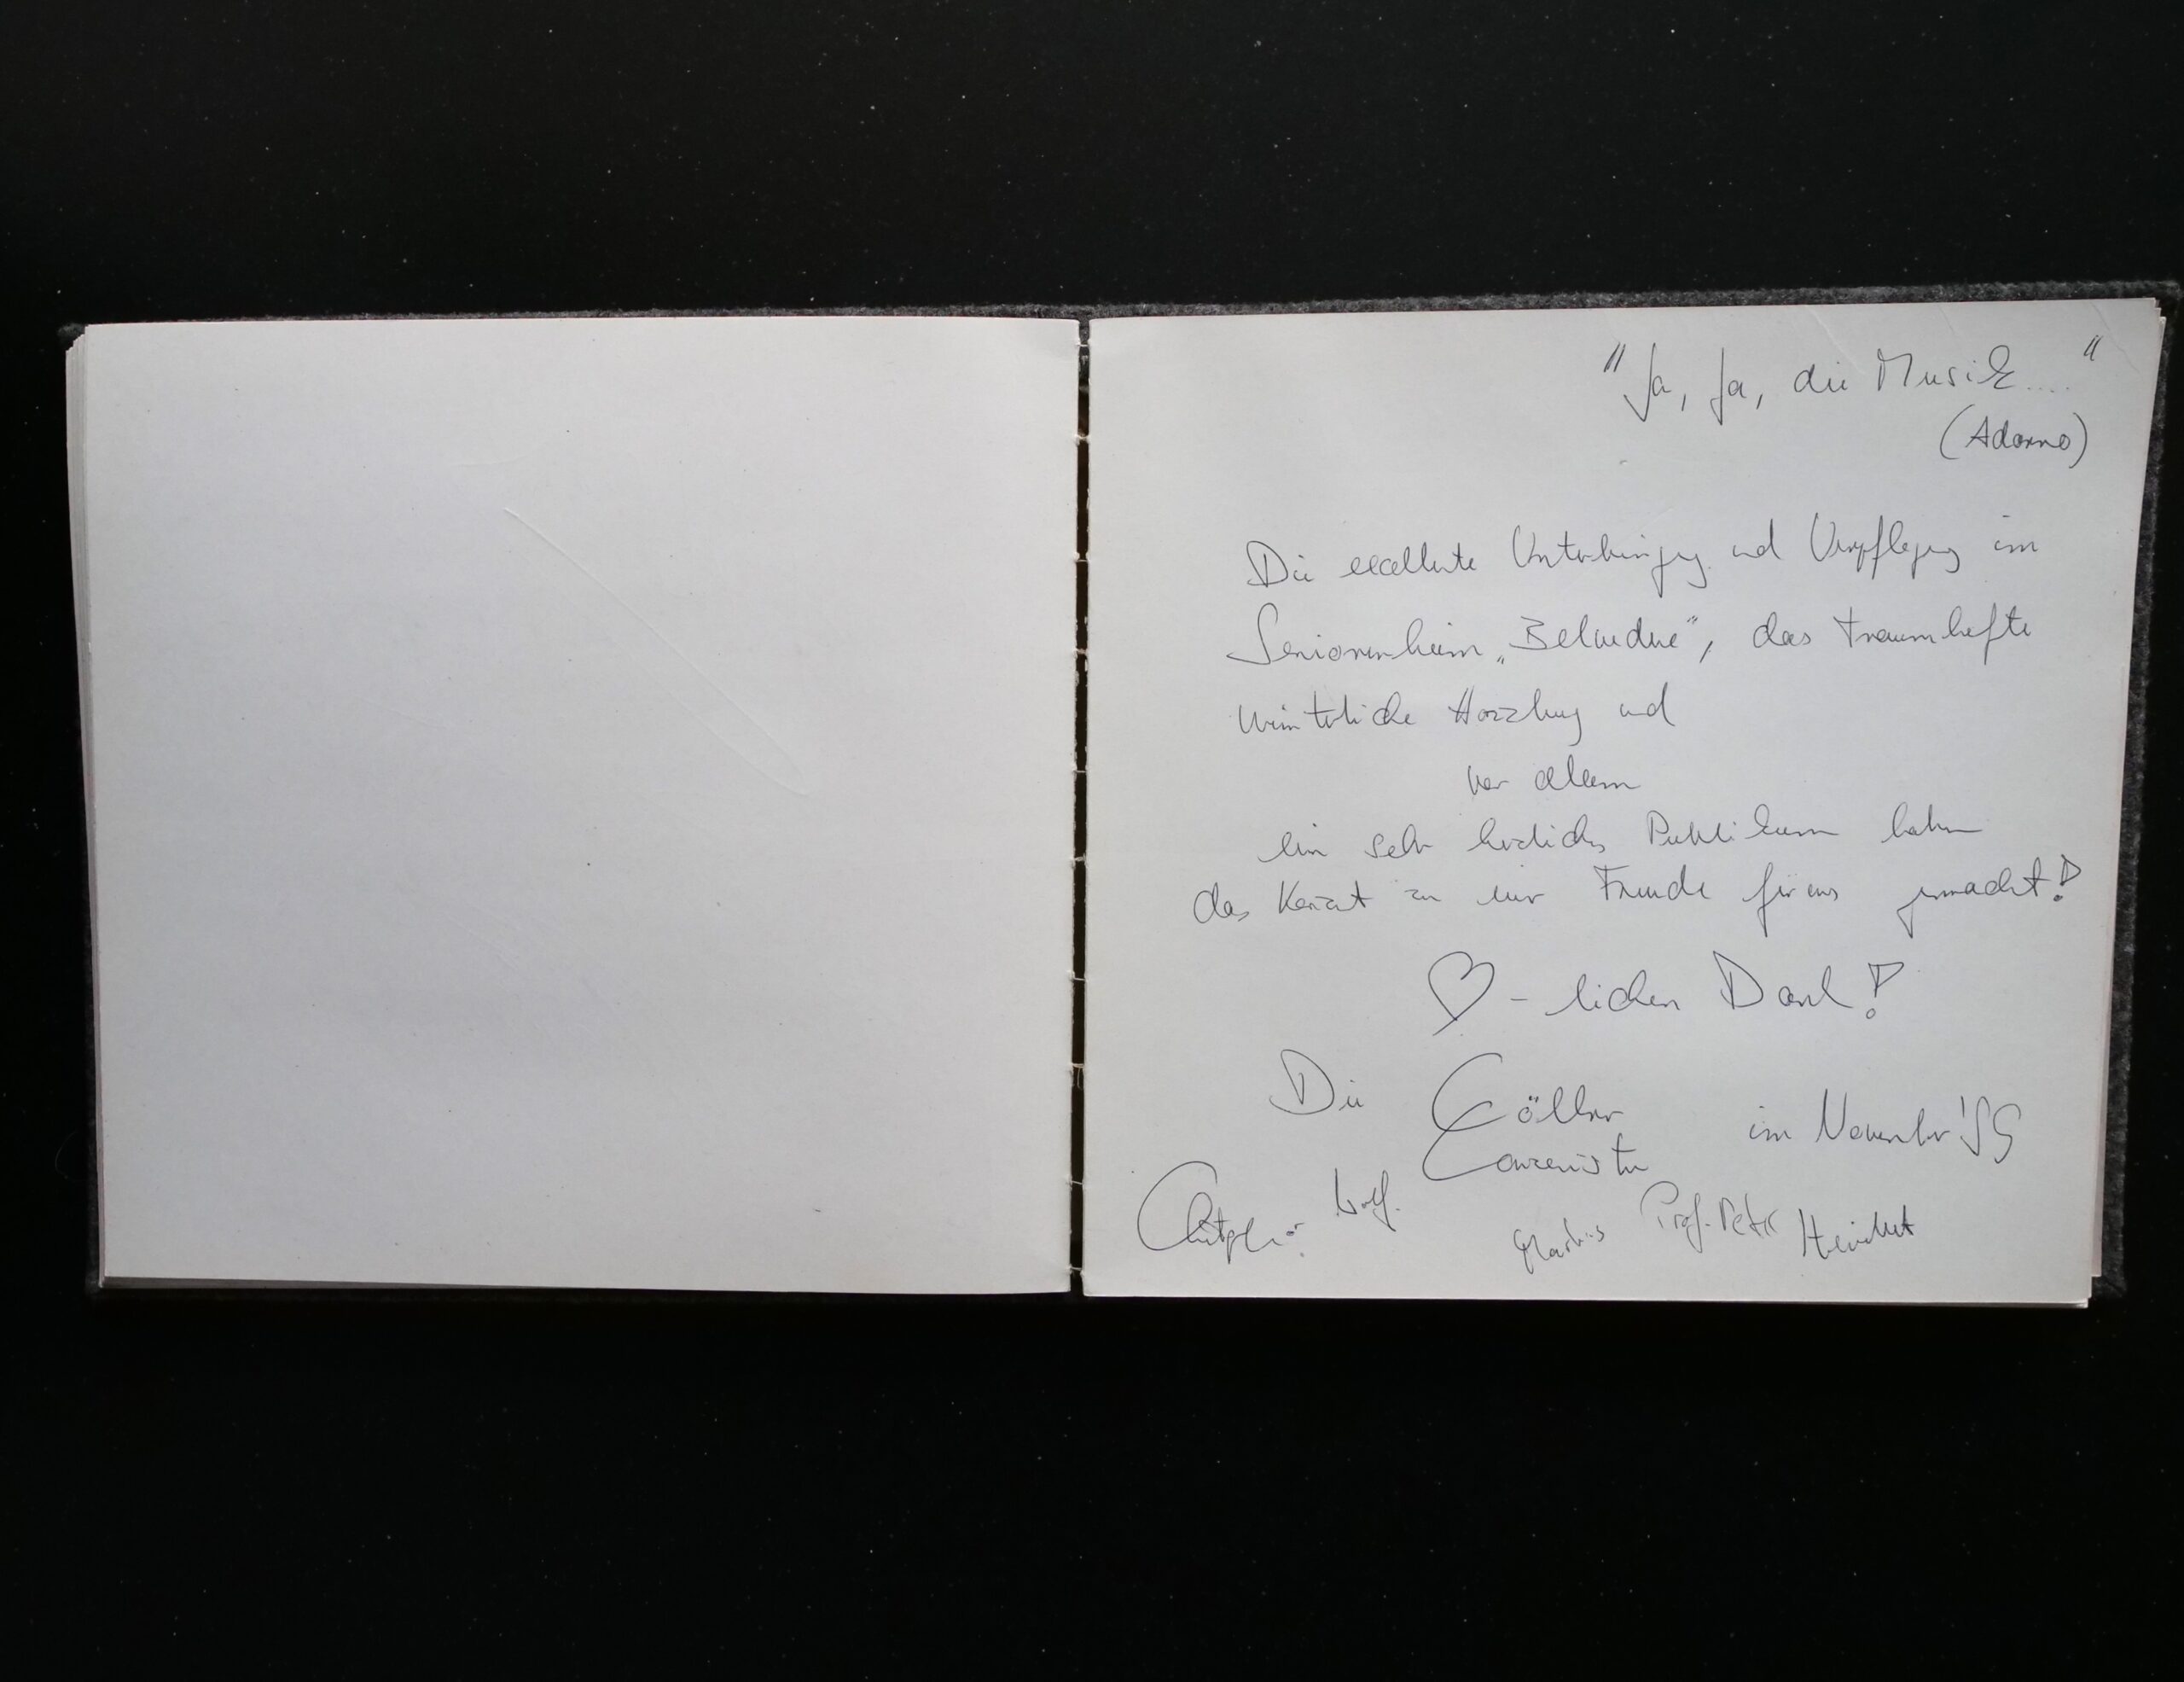 "Ja, Ja, die Musik...."
(Adorno)
Die excellente Unterbringung und Verpflegung im
Seniorenheim „Belvedere", das traumhafte
winterliche Harzburg und
vor allem
ein sehr herzliches Publikum haben
das Konzert zu einer Freude für uns gemacht!
♡-lichen Dank!
Die Cöllner
im November '99
Christopher Wolf.
Markus Prof. Peter